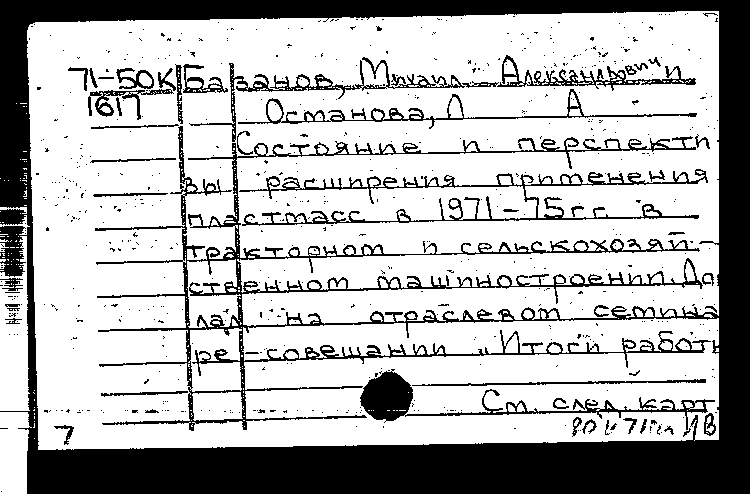 71-50К Базанов, Михаил Александрович и
1617 Останова, Л А
Состояние и перспекти
вы расширения применения
пластмасс в 1971-75гг. в
тракторном и сельскохозяй-
ственном машиностроении. До
лад на отраслевом семина
ре-совещании „Итоги работ
См. след. карт.
7